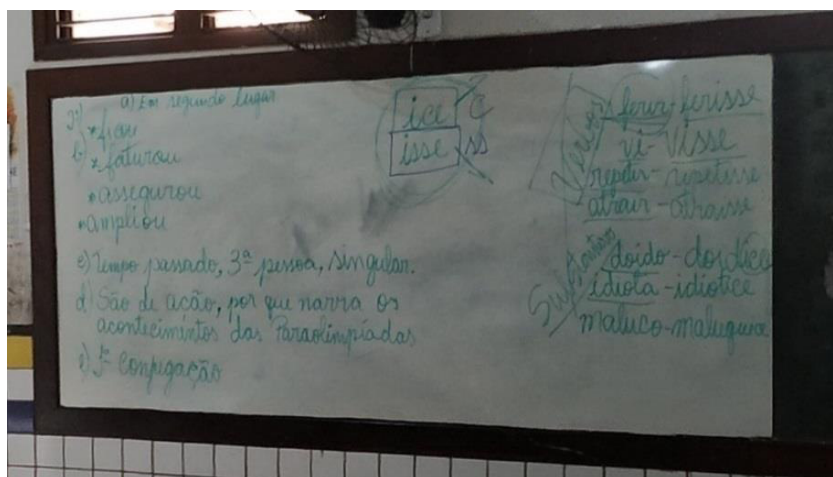 a) Em segundo lugar
b) * ficou
* faturou
* assegurou
* ampliou
c) Tempo passado, 3ª pessoa, singular.
d) São de ação, por que narra os
acontecimentos das Paraolimpíadas
e) 1ª Conjugação
ice c
isse ss
Verbos
ferir-ferisse
vi-visse
repetir-repetisse
atrair-atraisse
Substantivos
doido-doidice
idiota-idiotice
maluco-maluquice